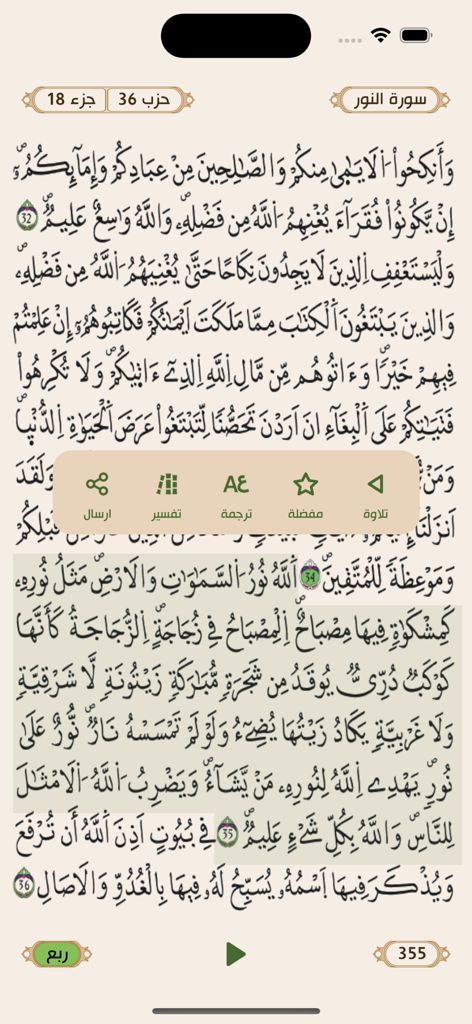 سورة النور
حزب 36
جزء 18
وَأَنكِحُواْ اُلَايَٰمَىٰ مِنكُمْ وَالصَّٰلِحِينَ مِنْ عِبَادِكُمْ وَإِمَآئِكُمُۥٓ
إِنْ يَّكُونُواْ فُقَرَآءَ يُغْنِهِمُ اُللَّهُ مِن فَضْلِهِۦۖ وَاللَّهُ وَٰسِعٌ عَلِيمٌۖ 32
وَلْيَسْتَعْفِفِ اِلذِينَ لَا يَجِدُونَ نِكَاحًا حَتَّىٰ يُغْنِيَهُمُ اُللَّهُ مِن فَضْلِهِۦۖ
وَالذِينَ يَبْتَغُونَ اَلْكِتَٰبَ مِمَّا مَلَكَتَ اَيْمَٰنُكُمْ فَكَاتِبُوهُمُۥٓ إِنْ عَلِمْتُمْ
فِيهِمْ خَيْرًاۖ وَءَاتُوهُم مِّن مَّالِ اِللَّهِ اِلذِےٓ ءَاتٜىٰكُمْۖ وَلَا تُكْرِهُواْ
فَتَيَٰتِكُمْ عَلَى اَلْبِغَآءِ انَ اَرَدْنَ تَحَصُّنًا لِّتَبْتَغُواْ عَرَضَ اَلْحَيَوٰةِ اِلدُّنْيٜاۖ
وَمَنْ
وَلَقَدَ
تلاوة
مفضلة
ترجمة
تفسير
ارسال
قَبْلِكُمْ
وَمَوْعِظَةً لِّلْمُتَّقِينَۖ 34 اَللَّهُ نُورُ اُلسَّمَٰوَٰتِ وَالَارْضِۖ مَثَلُ نُورِهِۦ
كَمِشْكَوٰةٍ فِيهَا مِصْبَاحٌۖ اِلْمِصْبَاحُ فِے زُجَاجَةٍۖ اِلزُّجَاجَةُ كَأَنَّهَا
كَوْكَبٌ دُرِّيٌّ يُوقَدُ مِن شَجَرَةٍ مُّبَٰرَكَةٍ زَيْتُونَةٍ لَّا شَرْقِيَّةٍ
وَلَا غَرْبِيَّةٍ يَكَادُ زَيْتُهَا يُضِےٓءُ وَلَوْ لَمْ تَمْسَسْهُ نَارٌۖ نُّورٌ عَلَىٰ
نُورٍۖ يَهْدِے اِللَّهُ لِنُورِهِۦ مَنْ يَّشَآءُۖ وَيَضْرِبُ اُللَّهُ اُلَامْثَٰلَ
لِلنَّاسِۖ وَاللَّهُ بِكُلِّ شَےْءٍ عَلِيمٌۖ 35 فِے بُيُوتٍ اَذِنَ اَللَّهُ أَن تُرْفَعَ
وَيُذْكَرَ فِيهَا اَسْمُهُۥ يُسَبِّحُ لَهُۥ فِيهَا بِالْغُدُوِّ وَالَاصَالِ 36
355
ربع